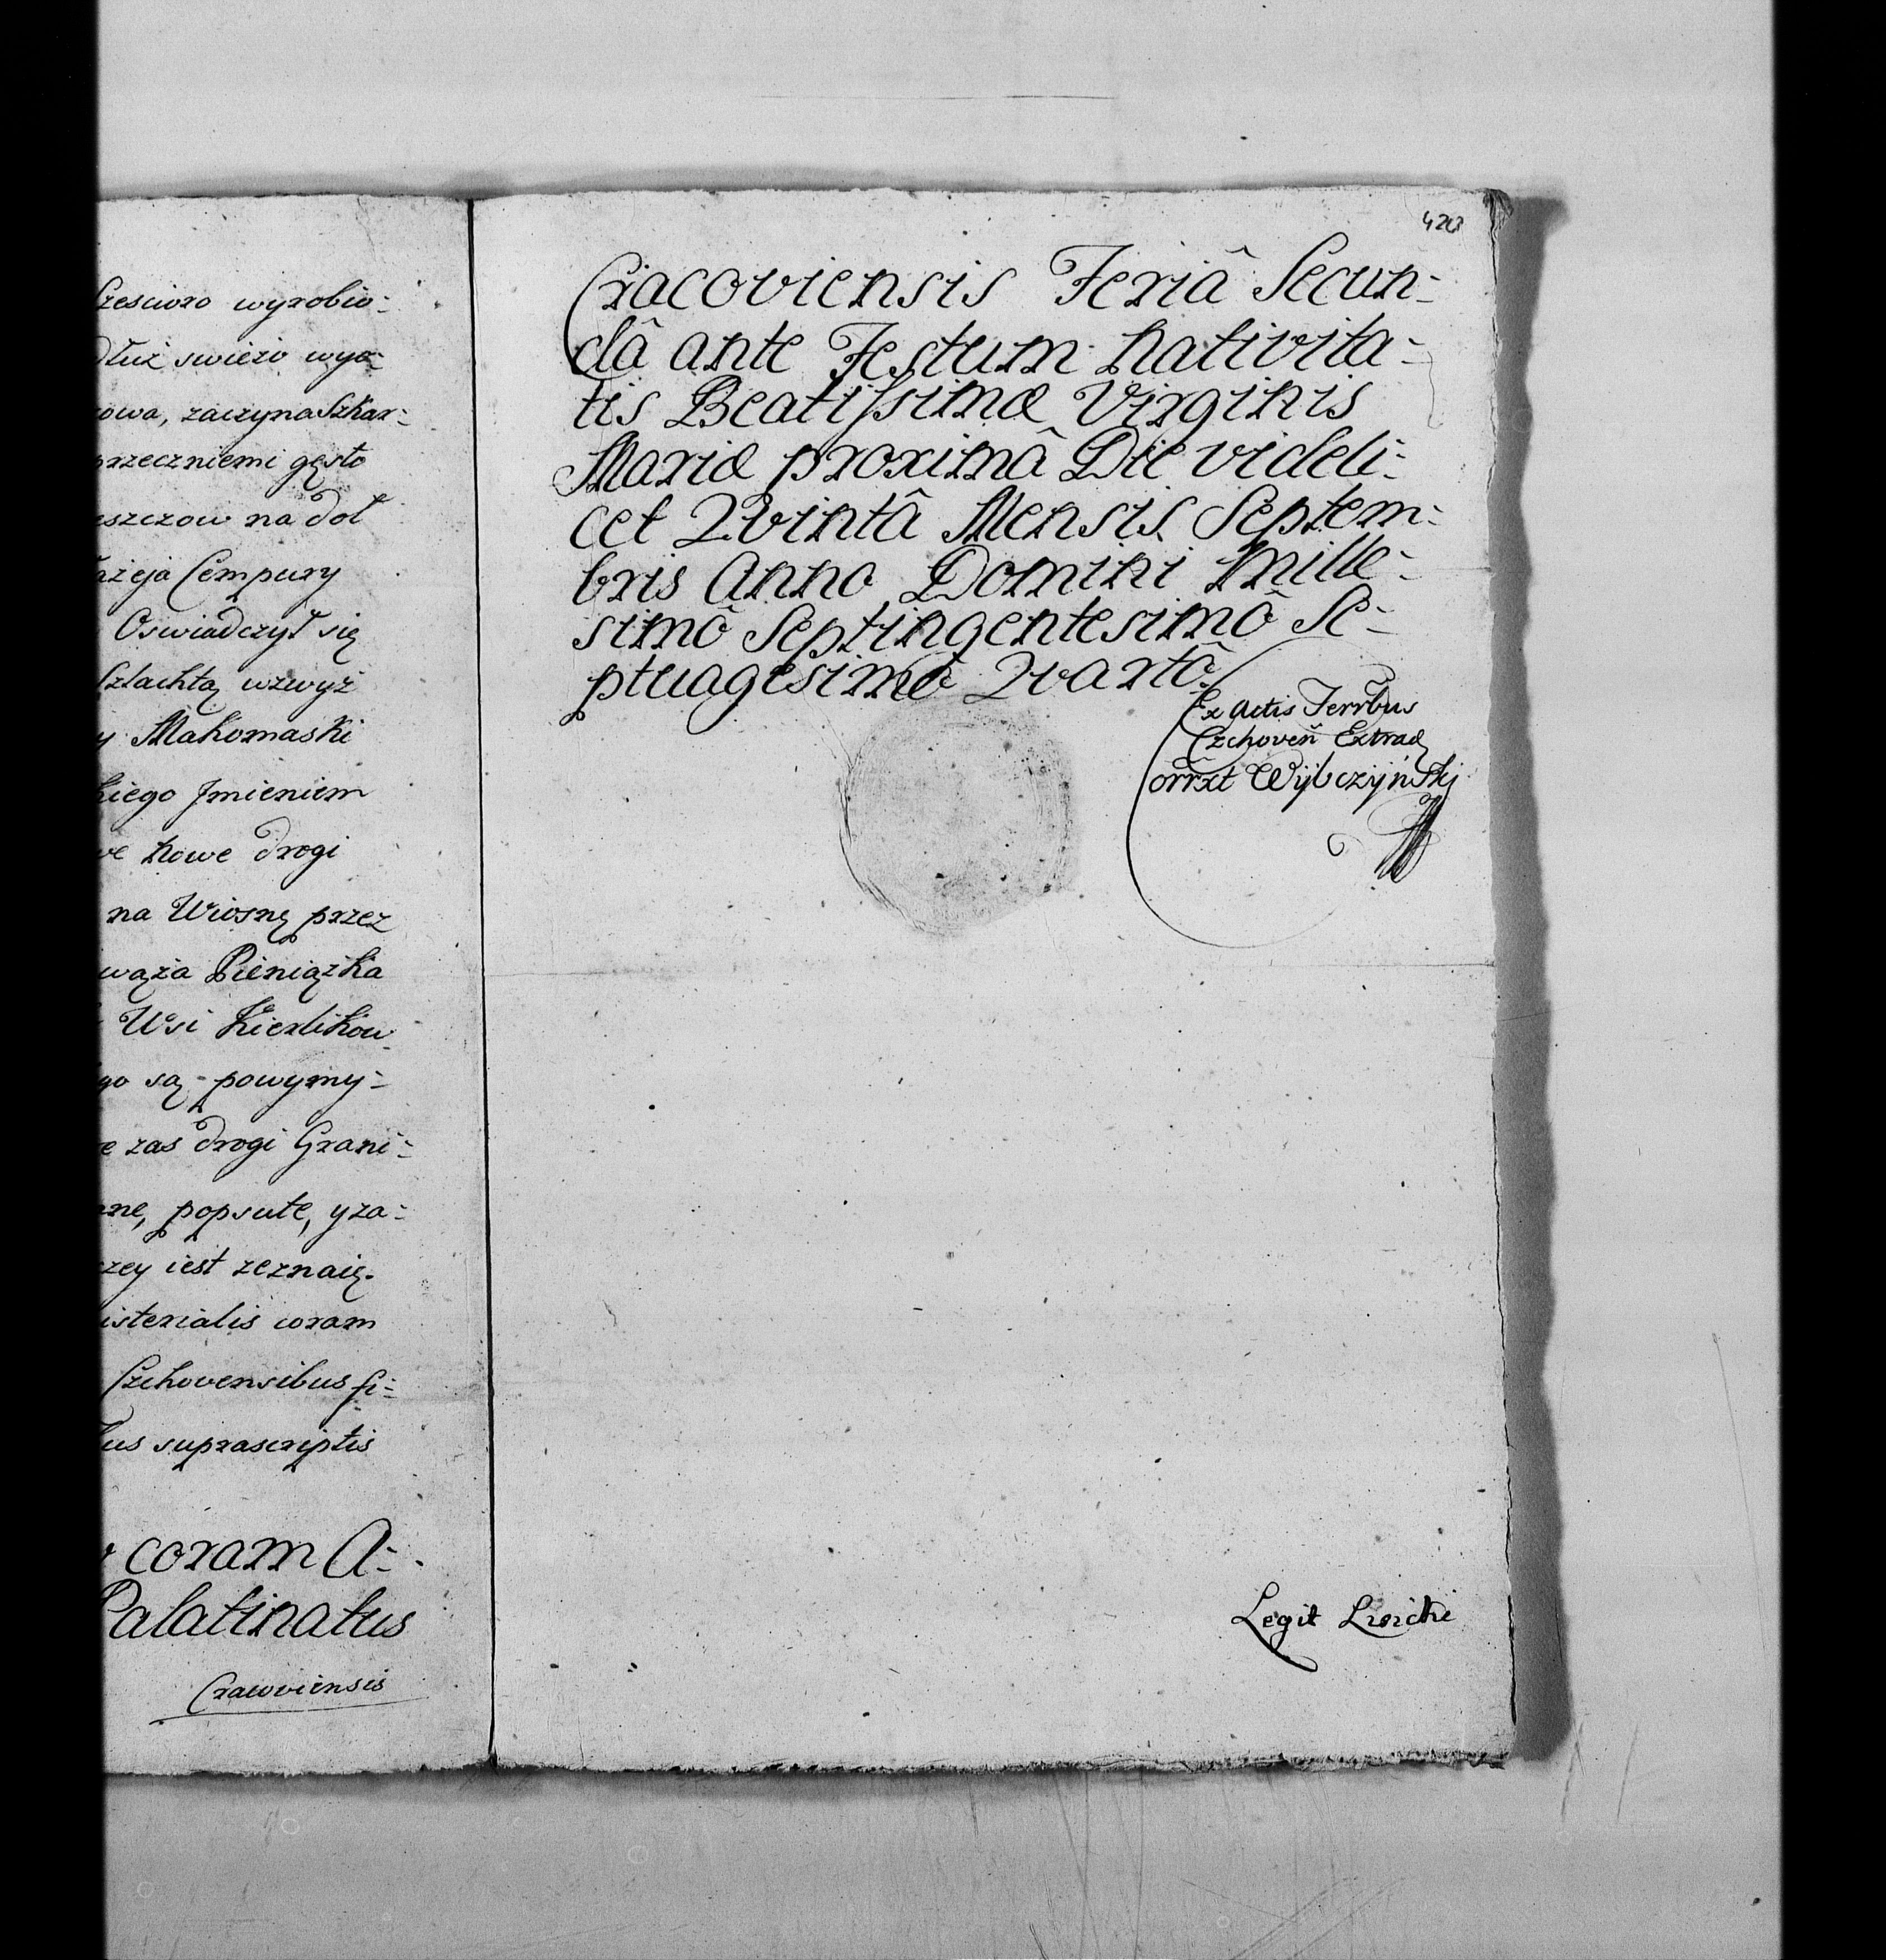 Czescioro wyrobio-
dłuż swieżo wyo-
zaczyna Szkar-
przeczniemi gęsto
na doł
Cempury
Oswiadczył się
Szlachtą wzwyż
y Makomaski
Jmieniem
nowe drogi
na Wiosnę przez
Pieniązka
Wsi Kierlikow
są powymy-
zas drogi Grani-
popsute, y za-
iest zeznaię.
coram
Czchovensibus fi-
suprascriptis
coram A-
Palatinatus
Cracoviensis
428
Cracoviensis Feriâ Secun-
dâ ante Festum Nativita-
tis Beatissimæ Virginis
Mariæ proximâ Die videli-
cet Qvintâ Mensis Septem-
bris Anno Domini Mille-
simô Septingentesimô Se-
ptuagesimô Qvartô
Ex Actis Terrbus
Czchoven Extrad
Corrxt Wybczyński
Legit Lisicki